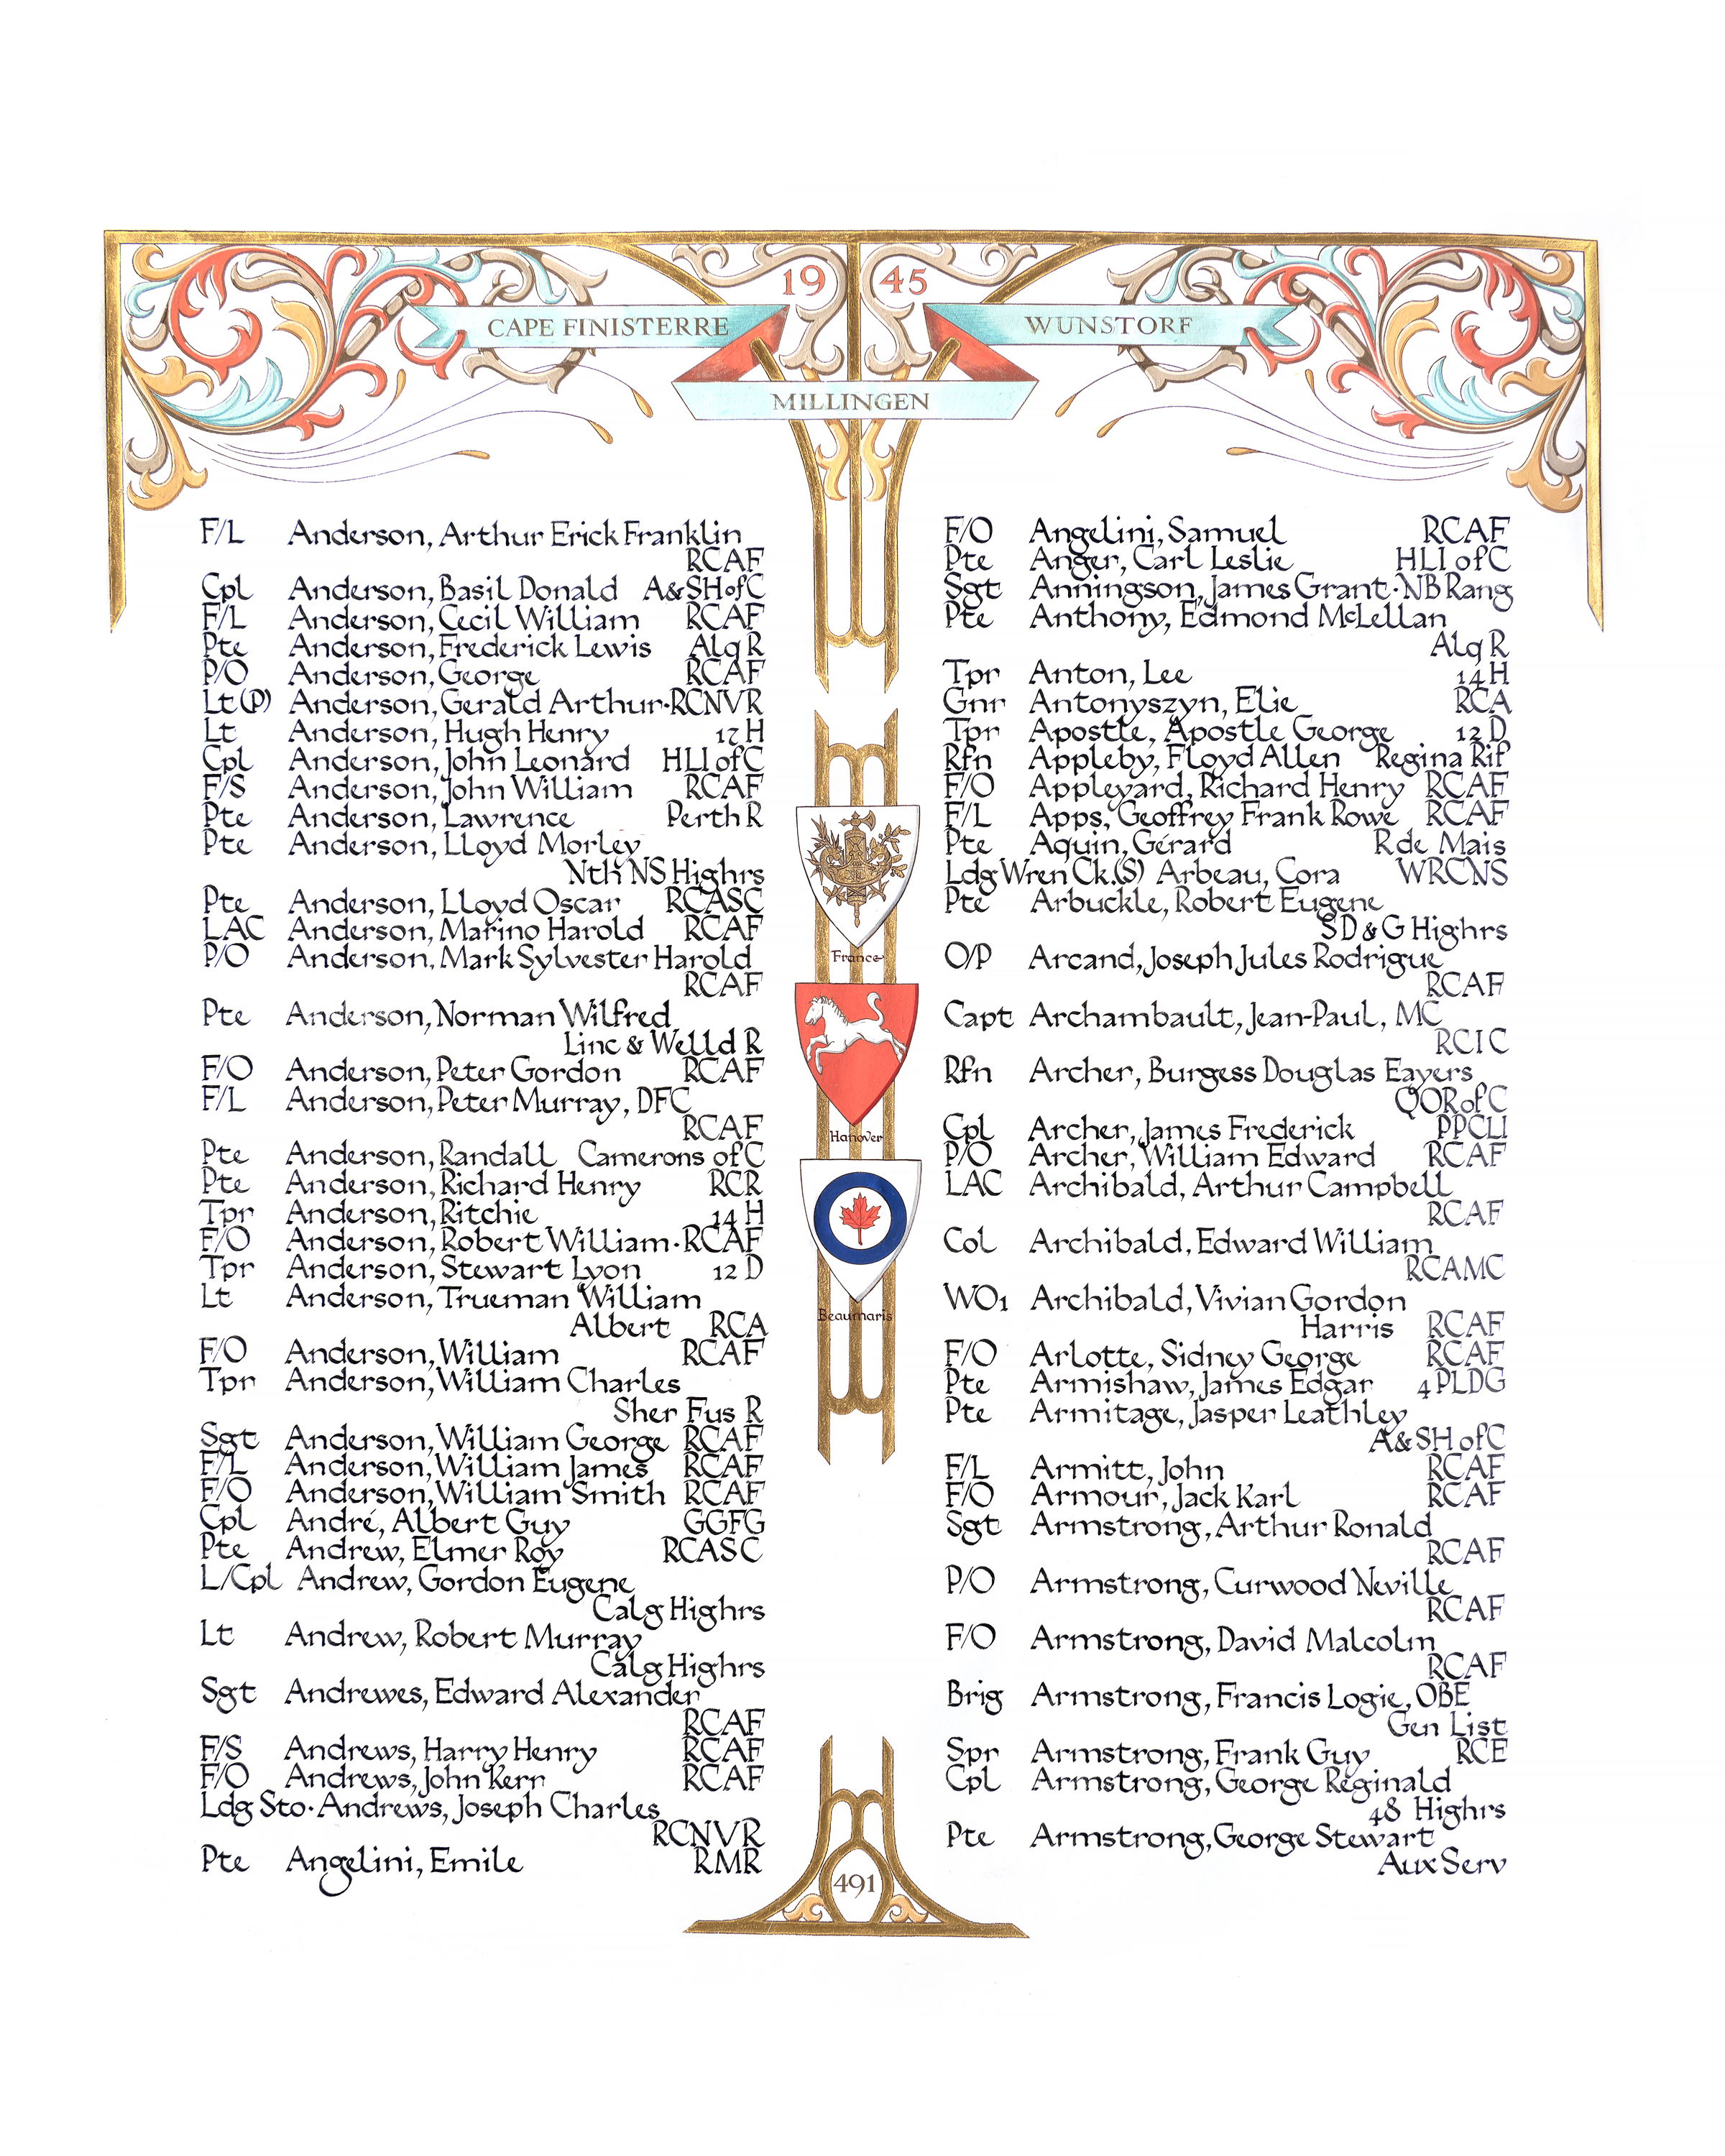 19 45
CAPE FINISTERRE
WUNSTORF
MILLINGEN
F/L Anderson, Arthur Erick Franklin
RCAF
Cpl Anderson, Basil Donald A&SH of C
F/L Anderson, Cecil William RCAF
Pte Anderson, Frederick Lewis Alq R
P/O Anderson, George RCAF
Lt (P) Anderson, Gerald Arthur·RCNVR
Lt Anderson, Hugh Henry 17 H
Cpl Anderson, John Leonard HLI of C
F/S Anderson, John William RCAF
Pte Anderson, Lawrence Perth R
Pte Anderson, Lloyd Morley
Nth NS Highrs
Pte Anderson, Lloyd Oscar RCASC
LAC Anderson, Marino Harold RCAF
P/O Anderson, Mark Sylvester Harold
RCAF
Pte Anderson, Norman Wilfred
Linc & Welld R
F/O Anderson, Peter Gordon RCAF
F/L Anderson, Peter Murray, DFC
RCAF
Pte Anderson, Randall Camerons of C
Pte Anderson, Richard Henry RCR
Tpr Anderson, Ritchie 14 H
F/O Anderson, Robert William·RCAF
Tpr Anderson, Stewart Lyon 12 D
Lt Anderson, Trueman William
Albert RCA
F/O Anderson, William RCAF
Tpr Anderson, William Charles
Sher Fus R
Sgt Anderson, William George RCAF
F/L Anderson, William James RCAF
F/O Anderson, William Smith RCAF
Cpl André, Albert Guy GGFG
Pte Andrew, Elmer Roy RCASC
L/Cpl Andrew, Gordon Eugene
Calg Highrs
Lt Andrew, Robert Murray
Calg Highrs
Sgt Andrewes, Edward Alexander
RCAF
F/S Andrews, Harry Henry RCAF
F/O Andrews, John Kerr RCAF
Ldg Sto·Andrews, Joseph Charles
RCNVR
Pte Angelini, Emile RMR
France
Hanover
Beaumaris
F/O Angelini, Samuel RCAF
Pte Anger, Carl Leslie HLI of C
Sgt Anningson, James Grant·NB Rang
Pte Anthony, Edmond McLellan
Alq R
Tpr Anton, Lee 14 H
Gnr Antonyszyn, Elie RCA
Tpr Apostle, Apostle George 12 D
Rfn Appleby, Floyd Allen Regina Rif
F/O Appleyard, Richard Henry RCAF
F/L Apps, Geoffrey Frank Rowe RCAF
Pte Aquin, Gérard R de Mais
Ldg Wren Ck.(S) Arbeau, Cora WRCNS
Pte Arbuckle, Robert Eugene
SD & G Highrs
O/P Arcand, Joseph Jules Rodrigue
RCAF
Capt Archambault, Jean-Paul, MC
RCIC
Rfn Archer, Burgess Douglas Eayers
QOR of C
Cpl Archer, James Frederick PPCLI
P/O Archer, William Edward RCAF
LAC Archibald, Arthur Campbell
RCAF
Col Archibald, Edward William
RCAMC
WO1 Archibald, Vivian Gordon
Harris RCAF
F/O Arlotte, Sidney George RCAF
Pte Armishaw, James Edgar 4 PLDG
Pte Armitage, Jasper Leathley
A& SH of C
F/L Armitt, John RCAF
F/O Armour, Jack Karl RCAF
Sgt Armstrong, Arthur Ronald
RCAF
P/O Armstrong, Curwood Neville
RCAF
F/O Armstrong, David Malcolm
RCAF
Brig Armstrong, Francis Logie, OBE
Gen List
Spr Armstrong, Frank Guy RCE
Cpl Armstrong, George Reginald
48 Highrs
Pte Armstrong, George Stewart
Aux Serv
491